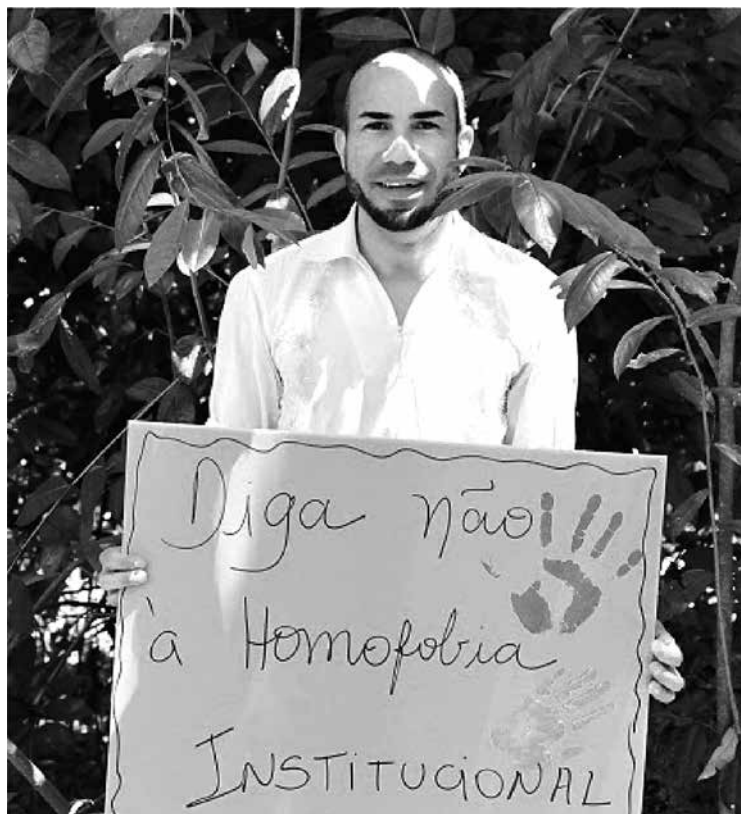 Diga não
à Homofobia
INSTITUCIONAL